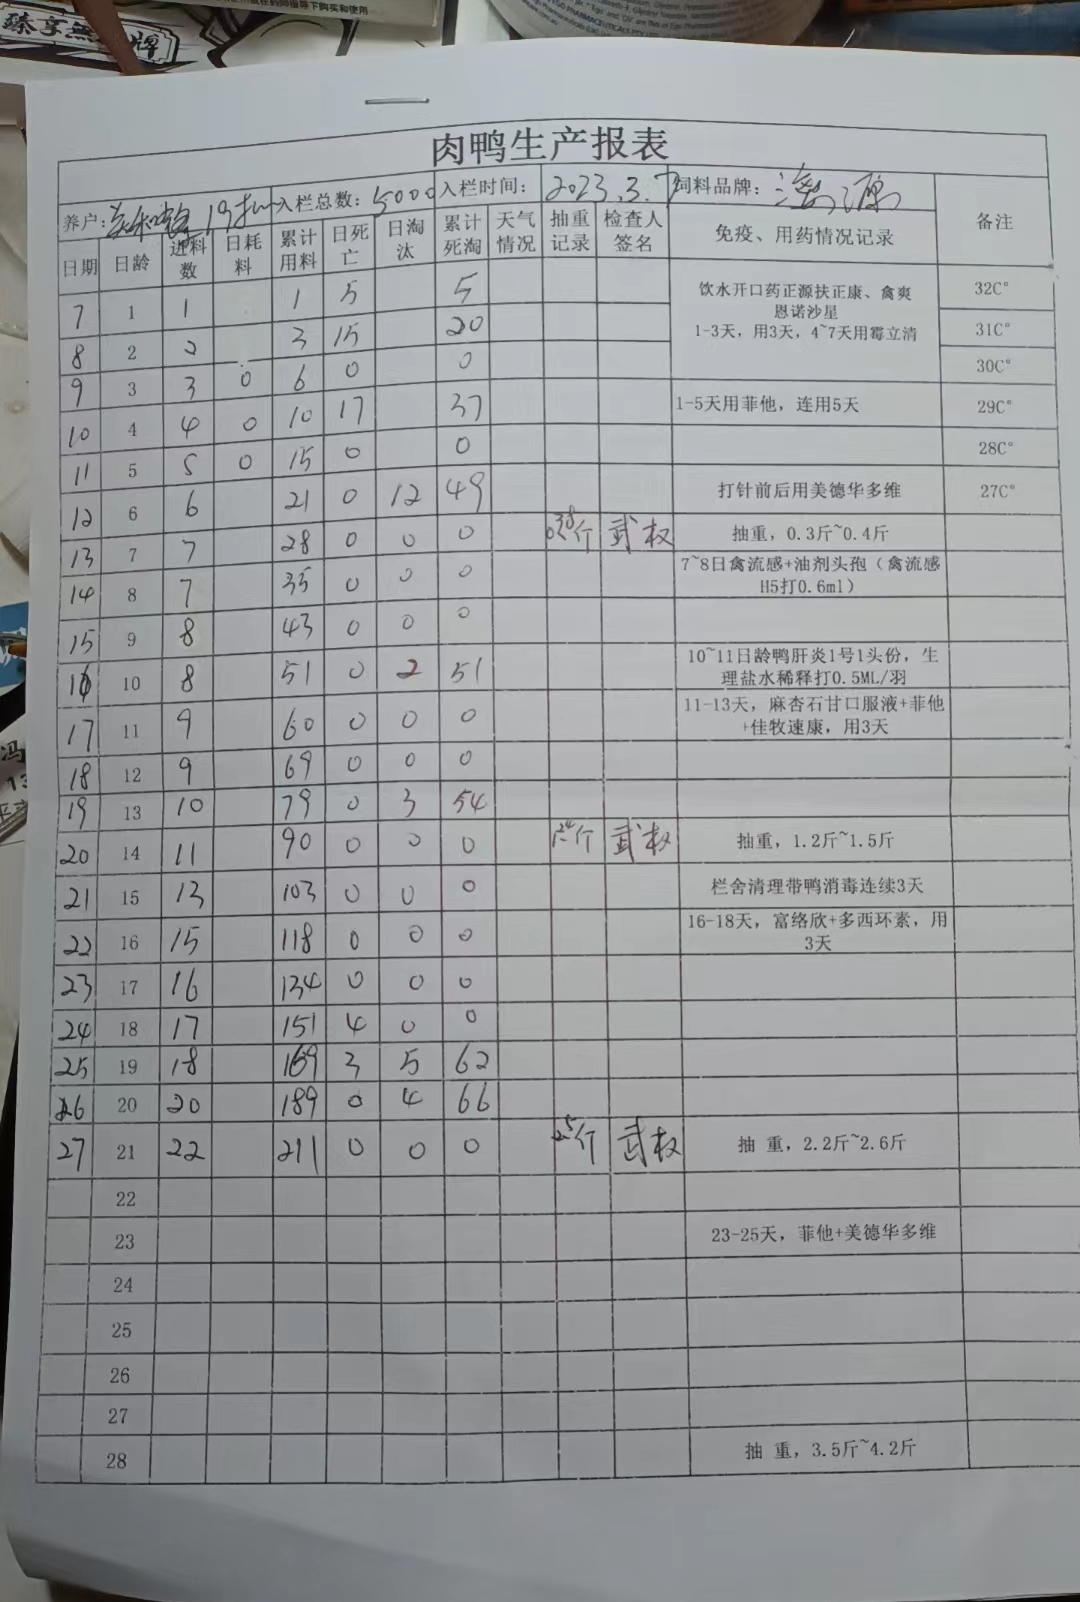 臻享無 牌
肉鸭生产报表
养户: 19批 入栏总数: 5000 入栏时间: 2023.3.7 饲料品牌: 备注
日期 日龄 进料数 日耗料 累计用料 日死亡 日淘汰 累计死淘 天气情况 抽重记录 检查人签名 免疫、用药情况记录
7 1 1 1 5 5 饮水开口药正源扶正康、禽爽 32C°
恩诺沙星
8 2 2 3 15 20 1-3天，用3天，4~7天用霉立清 31C°
9 3 3 0 6 0 0 30C°
10 4 4 0 10 17 37 1-5天用菲他，连用5天 29C°
11 5 5 0 15 0 0 28C°
12 6 6 21 0 12 49 打针前后用美德华多维 27C°
13 7 7 28 0 0 0 0.38斤 武权 抽重，0.3斤~0.4斤
14 8 7 35 0 0 0 7~8日禽流感+油剂头孢（禽流感
H5打0.6ml）
15 9 8 43 0 0 0
16 10 8 51 0 2 51 10~11日龄鸭肝炎1号1头份，生
理盐水稀释打0.5ML/羽
17 11 9 60 0 0 0 11-13天，麻杏石甘口服液+菲他
+佳牧速康，用3天
18 12 9 69 0 0 0
19 13 10 79 0 3 54
20 14 11 90 0 0 0 斤 武权 抽重，1.2斤~1.5斤
21 15 13 103 0 0 0 栏舍清理带鸭消毒连续3天
22 16 15 118 0 0 0 16-18天，富络欣+多西环素，用
3天
23 17 16 134 0 0 0
24 18 17 151 4 0 0
25 19 18 169 3 5 62
26 20 20 189 0 4 66
27 21 22 211 0 0 0 2.5斤 武权 抽 重，2.2斤~2.6斤
22
23 23-25天，菲他+美德华多维
24
25
26
27
28 抽 重，3.5斤~4.2斤